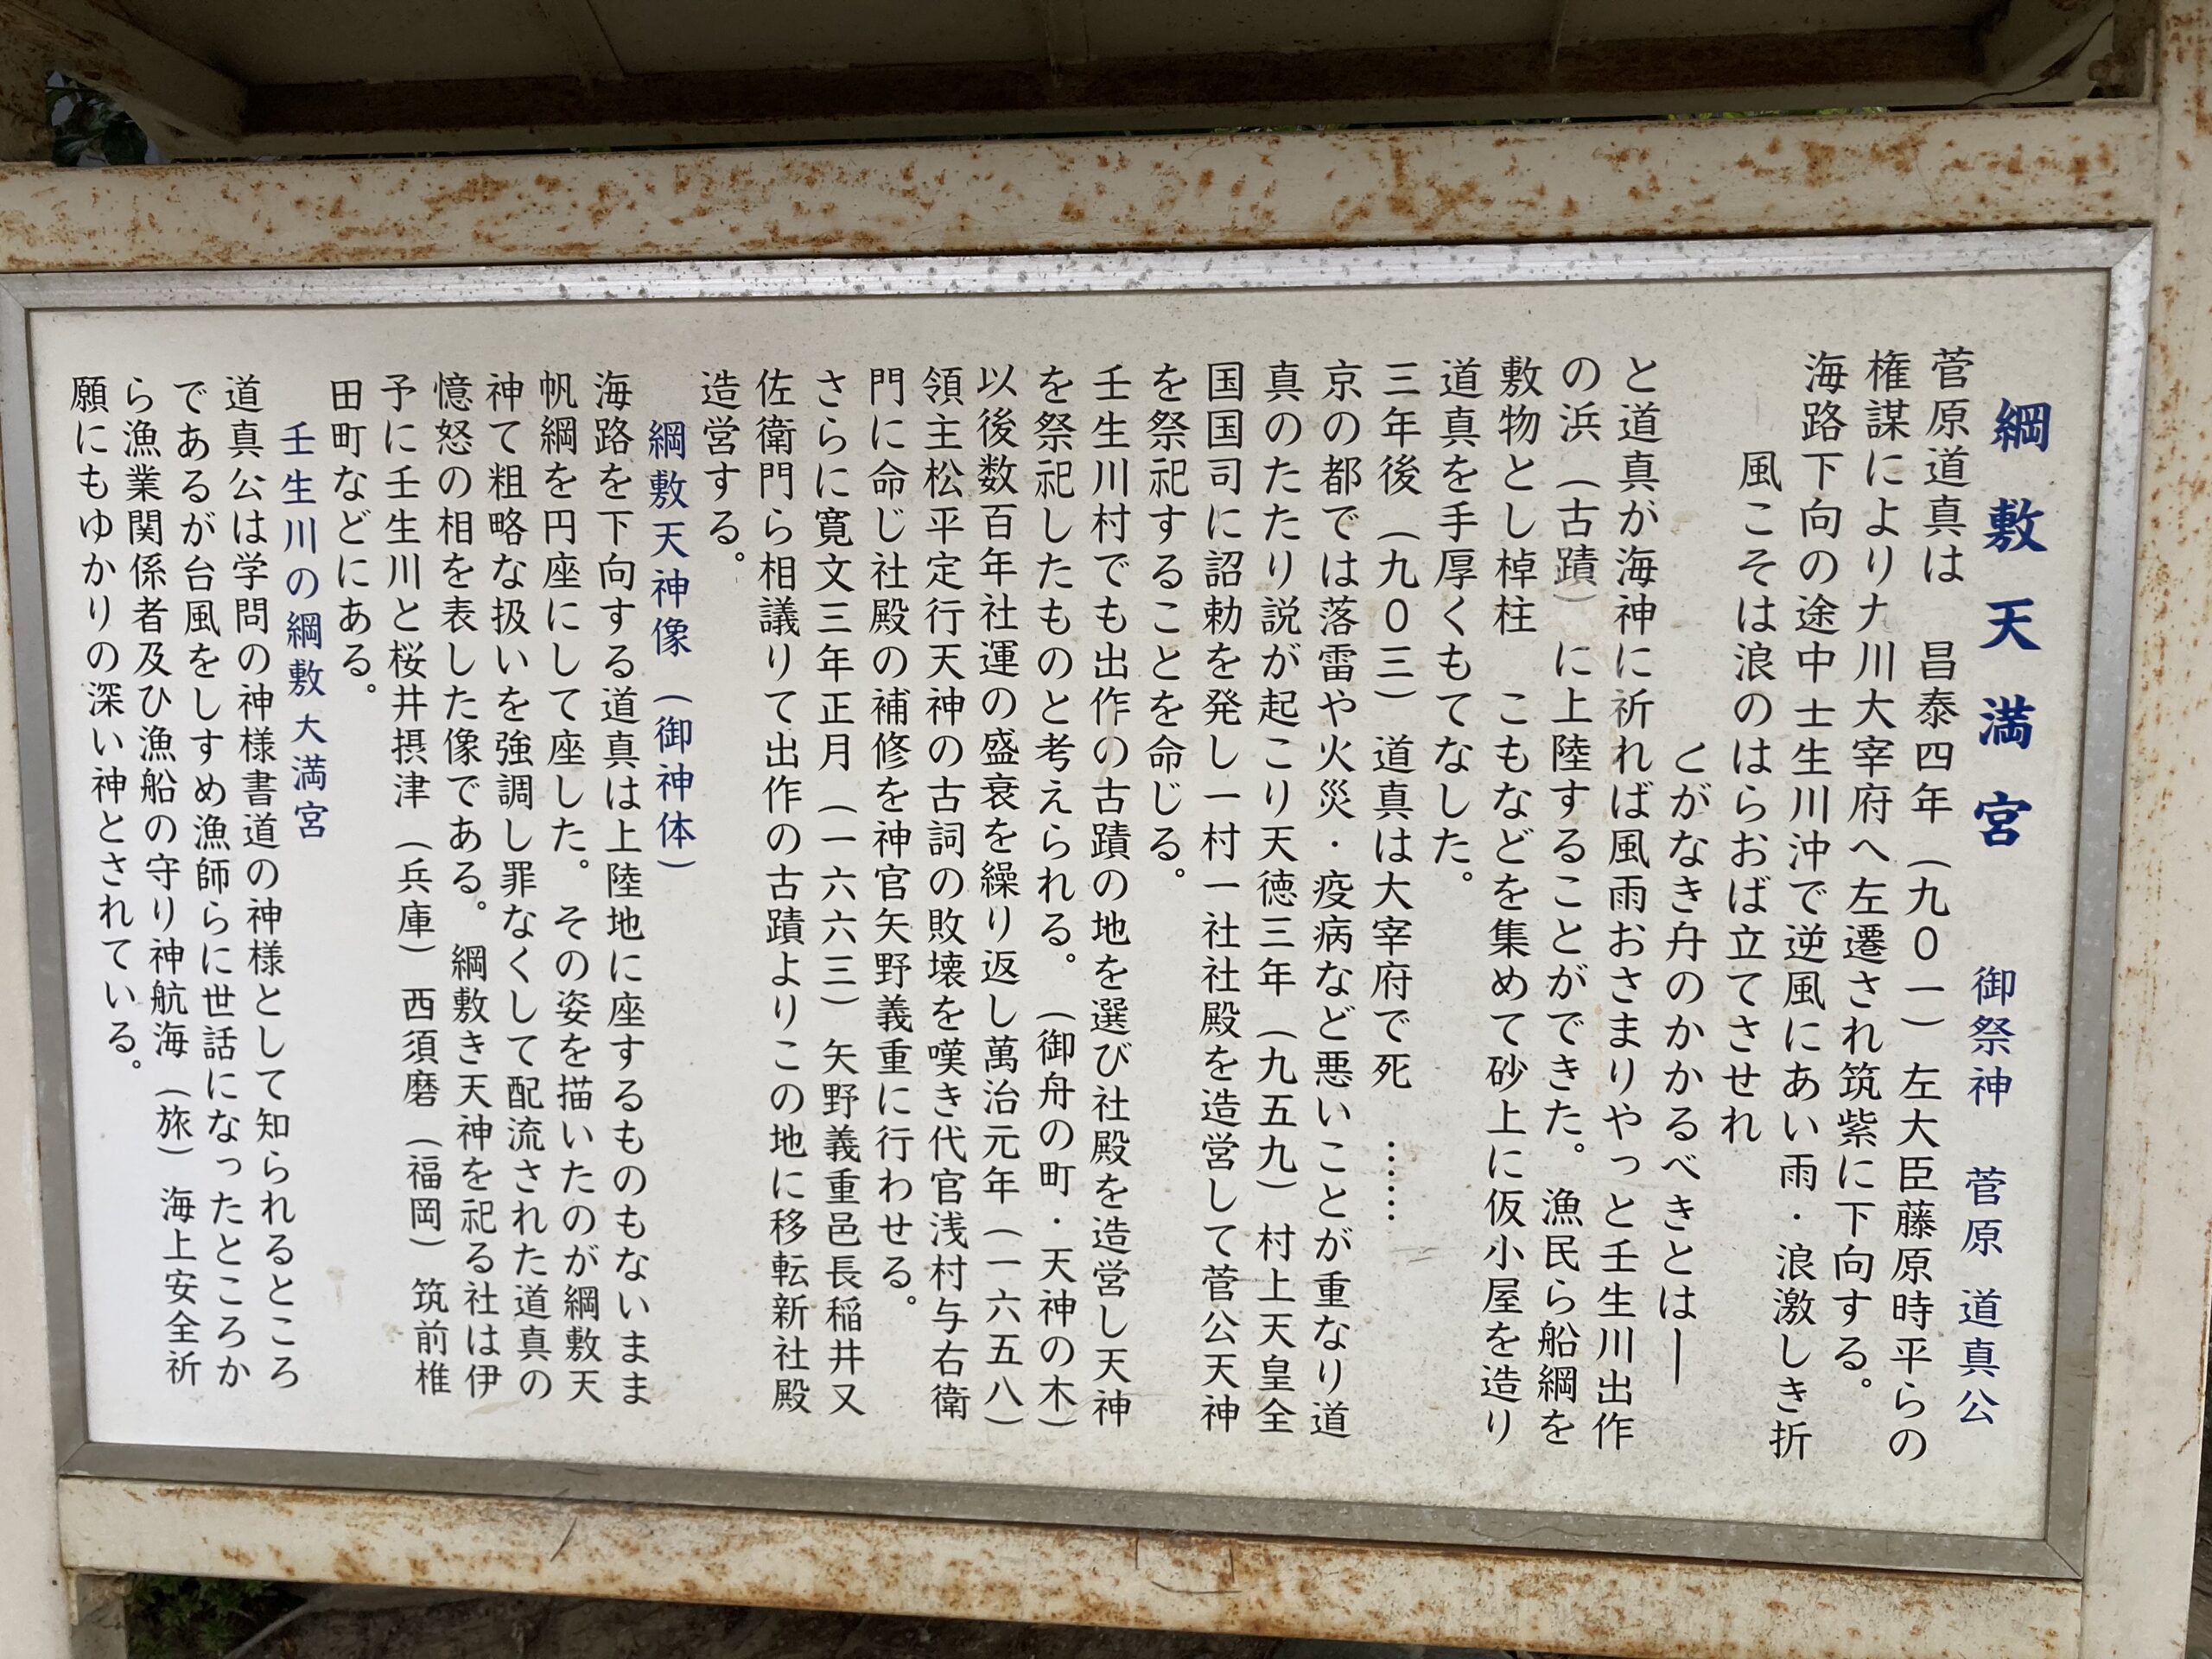 綱敷天満宮　御祭神　菅原道真公
菅原道真は　昌泰四年（九０一）左大臣藤原時平らの
権謀によりナ川大宰府へ左遷され筑紫に下向する。
海路下向の途中士生川沖で逆風にあい雨・浪激しき折
風こそは浪のはらおば立てさせれ
とがなき舟のかかるべきとは―
と道真が海神に祈れば風雨おさまりやっと壬生川出作
の浜（古蹟）に上陸することができた。漁民ら船綱を
敷物とし棹柱　こもなどを集めて砂上に仮小屋を造り
道真を手厚くもてなした。
三年後（九０三）道真は大宰府で死　……
京の都では落雷や火災・疫病など悪いことが重なり道
真のたたり説が起こり天徳三年（九五九）村上天皇全
国国司に詔勅を発し一村一社社殿を造営して菅公天神
を祭祀することを命じる。
壬生川村でも出作の古蹟の地を選び社殿を造営し天神
を祭祀したものと考えられる。（御舟の町・天神の木）
以後数百年社運の盛衰を繰り返し萬治元年（一六五八）
領主松平定行天神の古詞の敗壊を嘆き代官浅村与右衛
門に命じ社殿の補修を神官矢野義重に行わせる。
さらに寛文三年正月（一六六三）矢野義重邑長稲井又
佐衛門ら相議りて出作の古蹟よりこの地に移転新社殿
造営する。
綱敷天神像（御神体）
海路を下向する道真は上陸地に座するものもないまま
帆綱を円座にして座した。その姿を描いたのが綱敷天
神て粗略な扱いを強調し罪なくして配流された道真の
憶怒の相を表した像である。綱敷き天神を祀る社は伊
予に壬生川と桜井摂津（兵庫）西須磨（福岡）筑前椎
田町などにある。
壬生川の綱敷大満宮
道真公は学問の神様書道の神様として知られるところ
であるが台風をしすめ漁師らに世話になったところか
ら漁業関係者及ひ漁船の守り神航海（旅）海上安全祈
願にもゆかりの深い神とされている。